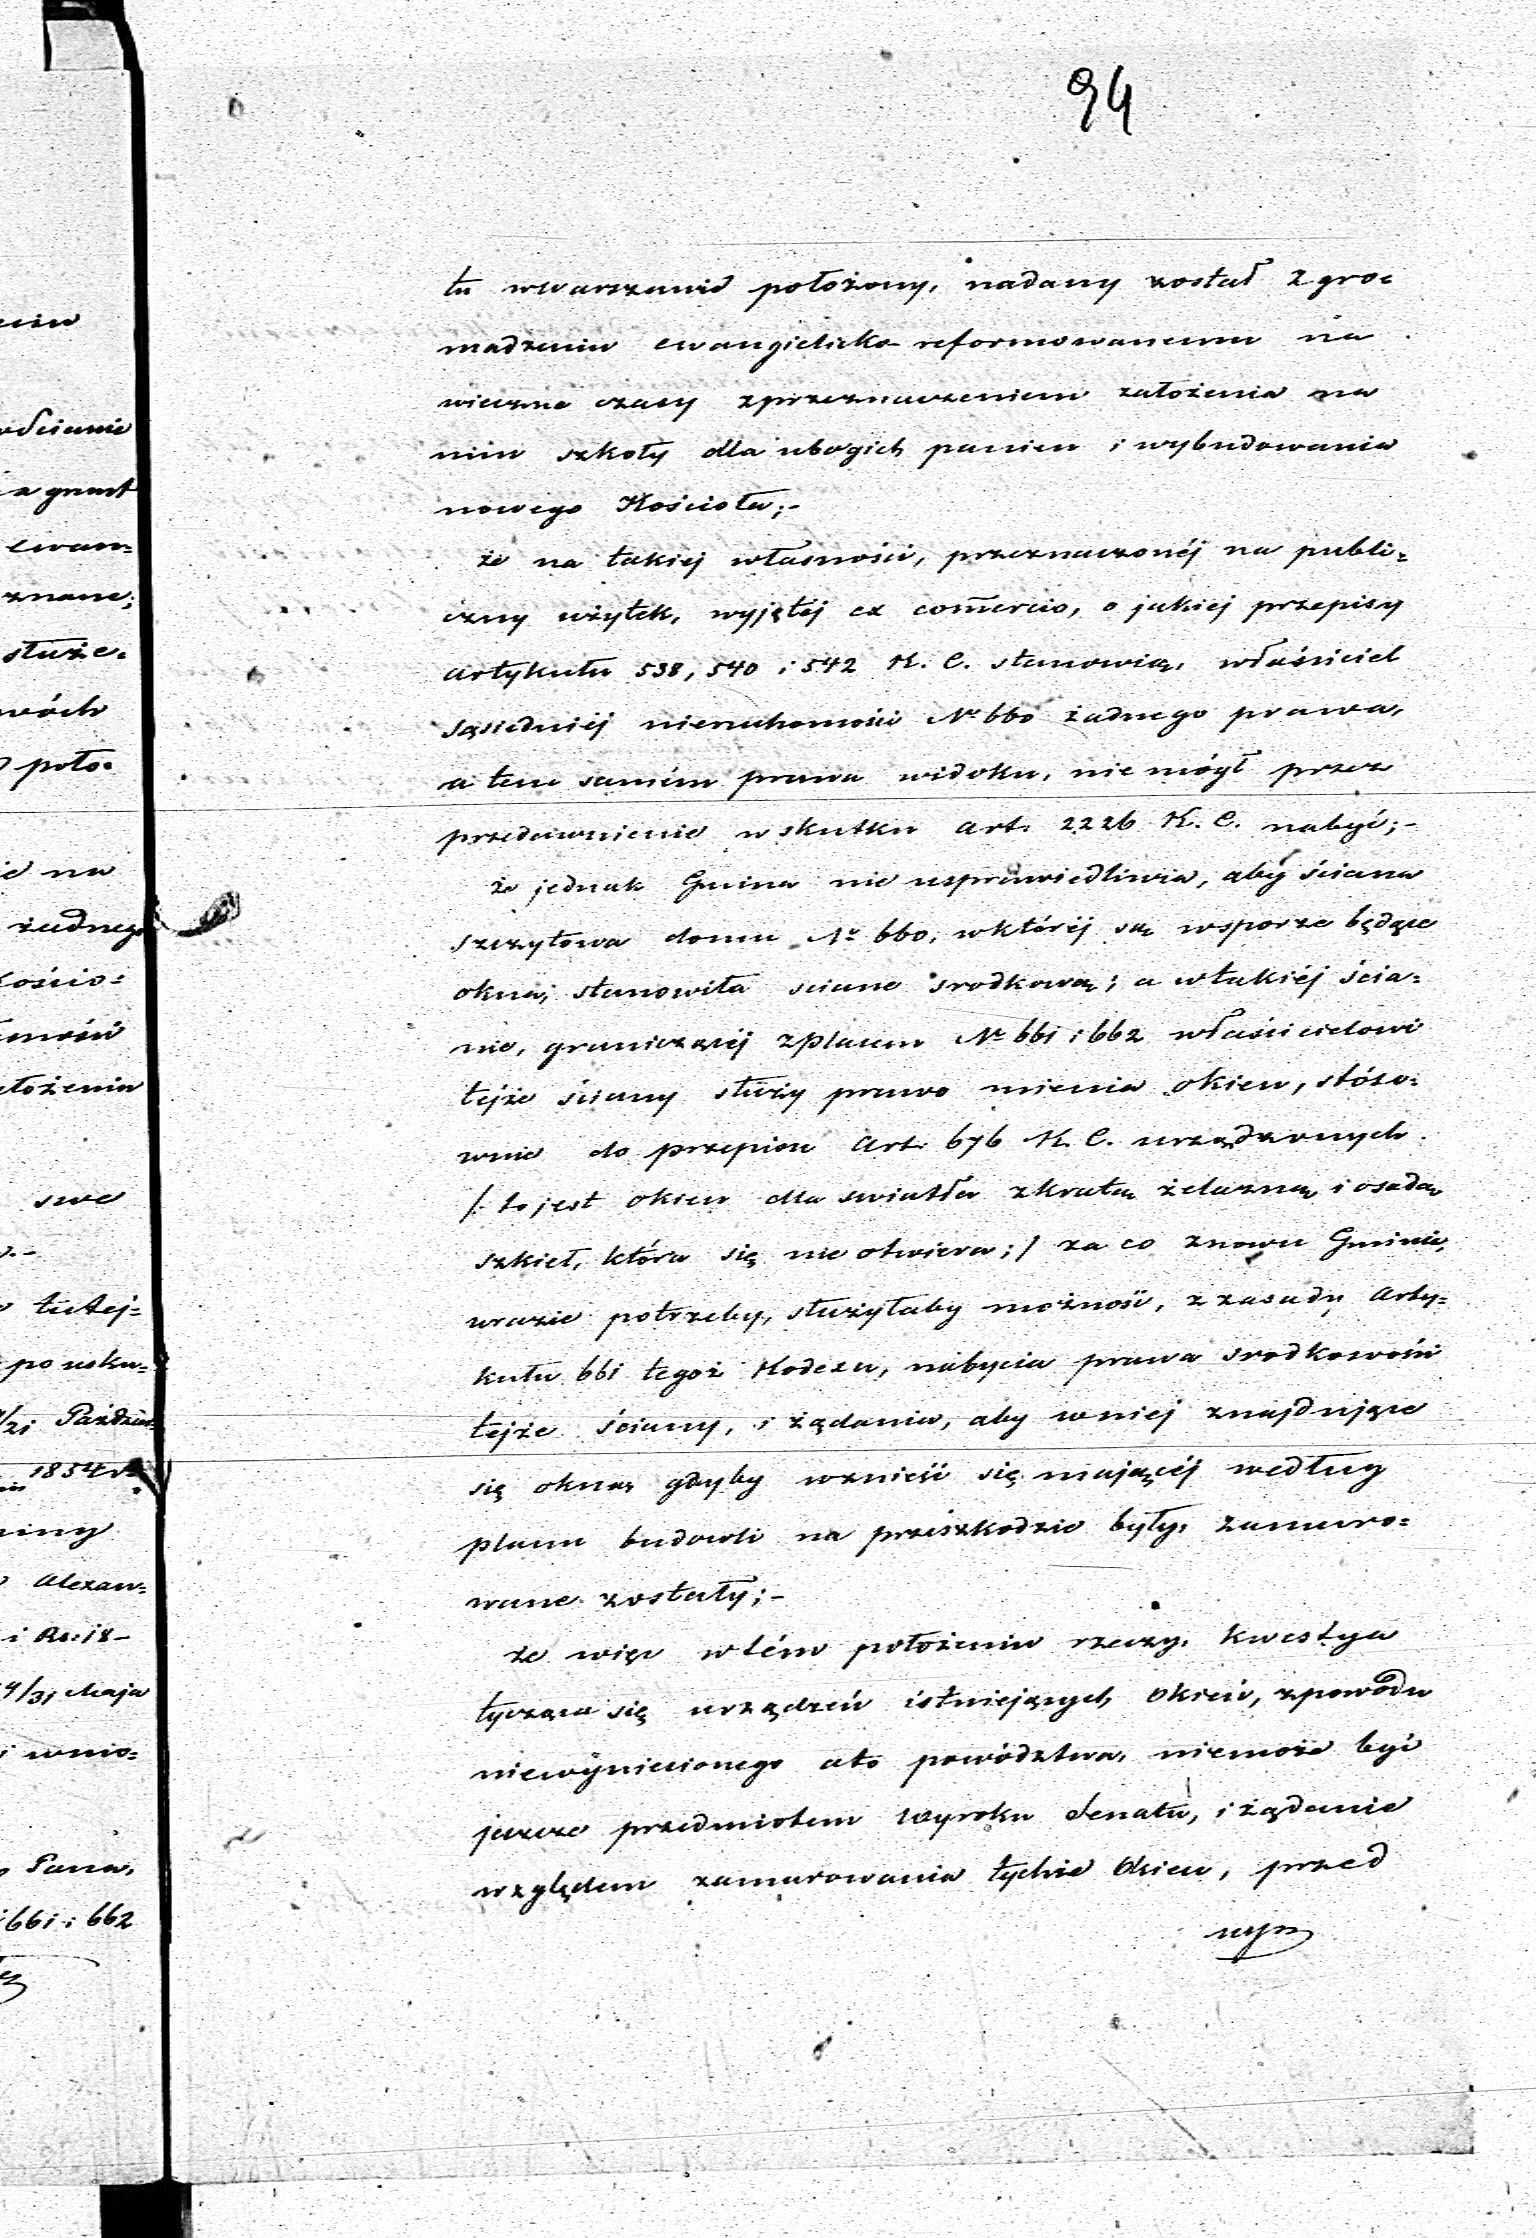 94
tu w Warszawie położony, nadany został Zgro=
madzeniu ewangielicko reformowanemu na
wieczne czasy z przeznaczeniem założenia na
nim szkoły dla ubogich panien i wybudowania
nowego Kościoła;-
że na takiej własności, przeznaczonéj na publi=
czny użytek, wyjętéj ex comercio, o jakiej przepisy
artykułu 538, 540 i 542 K. C. stanowią, właściciel
sąsiedniéj nieruchomości Nr 660 żadnego prawa,
a tem samém prawa widoku, nie mógł przez
przedawnienie w skutku art. 2226 K. C. nabyć;-
że jednak Gmina nie usprawiedliwia, aby ściana
szczytowa domu Nr 660, w któréj są w sporze będące
okna, stanowiła sciane srodkową; a w takiéj ścia=
nie, graniczącéj z placem Nr 661 i 662 właścicielowi
tejże ściany służy prawo mienia okien, stóso=
wnie do przepisu Art. 676 K. C. urządzonych
/: to jest okien dla swiatła z kratą żelazną i osadą
szkieł, która się nie otwiera;/ za co znowu Gminie,
w razie potrzeby, służyłaby możność, z zasady Arty=
kułu 661 tegoż Kodexu, nabycia prawa srodkowości
tejże ściany, i żądania, aby w niej znajdujące
się okna, gdyby wznieść się mającéj według
planu budowli na przeszkodzie były, zamuro=
wane zostały;-
że więc w tém położeniu rzeczy, kwestya
tycząca się urządzeń istniejących okien, z powodu
niewyniecionego oto powództwa, niemoże być
jeszcze przedmiotem Wyroku Senatu, i żądanie
względem zamurowania tychże Okien, przed
wyn
eniu
a grunt
ewan=
znane;
służe=
poło=
ie na
żadnego
Kościo=
łożenia
swe
tutej=
po usku=
/21 Paździer=
1854 r
miny
Alexan=
i Rs: 18-
/31 Maja
i wnio=
Pana,
661 i 662